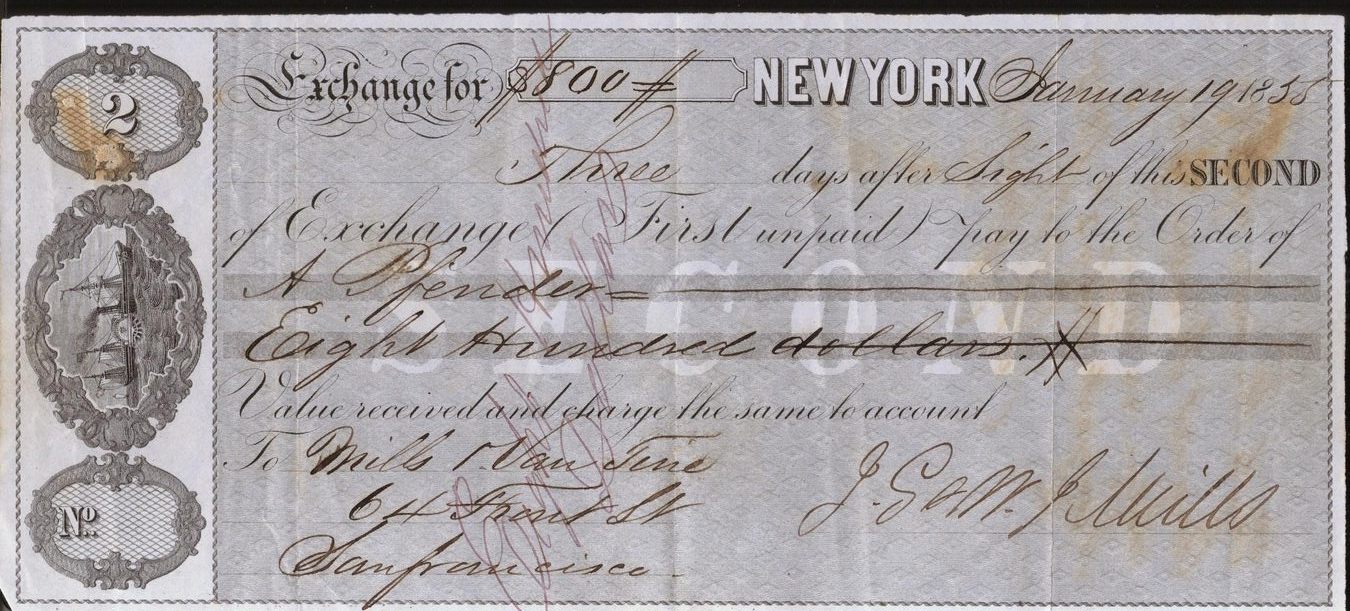 2
Exchange for $800 NEW YORK January 19 1855
Three days after Sight of this SECOND
of Exchange (First unpaid) pay to the Order of
A Pfender
SECOND
Eight Hundred dollars.
Value received and charge the same to account
To Mills & Van Tine
64 Front St
San francisco
J. G & W. J Mills
No.